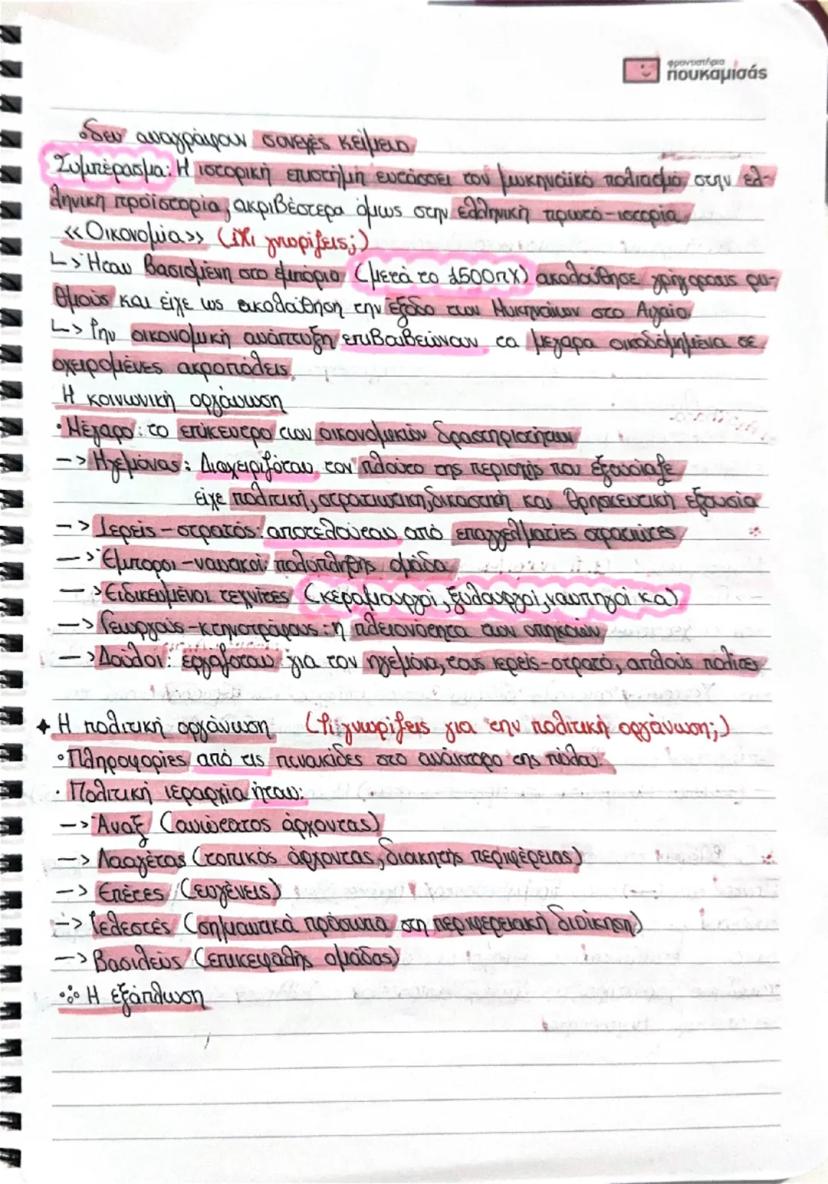 φροντιστήρια
πουκαμισάς
•δεν αναγράφουν συνεχές κείμενο
Συμπέρασμα: Η ιστορική επιστήμη εντάσσει τον μυκηναϊκό πολιτισμό στην ελ-
ληνική προϊστορία, ακριβέστερα όμως στην ελληνική πρωτο-ιστορία.
«Οικονομία» (Τι γνωρίζεις;)
↳ Ήταν βασισμένη στο εμπόριο (μετά το 1500πΧ) ακολούθησε γρήγορους ρυ-
θμούς και είχε ως ακολούθηση την έξοδο των Μυκηναίων στο Αιγαίο
↳ Την οικονομική ανάπτυξη επιβαιβεώνουν τα μέγαρα οικοδομημένα σε
οχειρομένες ακροπόλεις.
Η κοινωνική οργάνωση
•Μέγαρο: το επίκεντρο των οικονομικών δραστηριοτήτων
-> Ηγεμόνας: Διαχειριζόταν τον πλούτο της περιοχής που εξουσίαζε
είχε πολιτική, στρατιωτική, δικαστική και θρησκευτική εξουσία
-> Ιερείς-στρατός: αποτελούταν από επαγγελματίες στρατιώτες
-> Έμποροι-ναυτικοί: πολυπληθής ομάδα
-> Ειδικευμένοι τεχνίτες (κεραμουργοί, ξυλουργοί, ναυπηγοί κ.α)
-> Γεωργούς-κτηνοτρόφους: η πλειονότητα των υπηκόων
-> Δούλοι: εργάζοταν για τον ηγεμόνα, τους ιερείς-στρατό, απλούς πολίτες
✦ Η πολιτική οργάνωση (Τι γνωρίζεις για την πολιτική οργάνωση;)
•Πληροφορίες από τις πινακίδες στο ανάκτορο της πύλου.
• Πολιτική ιεραρχία ήταν:
-> Άναξ (ανώτατος άρχοντας)
-> Λααγέτας (τοπικός άρχοντας, διοικητής περιφέρειας)
-> Επέτες (ευγένεις)
-> Τελεστές (σημαντικά πρόσωπα στη περιφερειακή διοίκηση)
-> Βασιλεύς (επικεφαλής ομάδας)
Η εξάπλωση